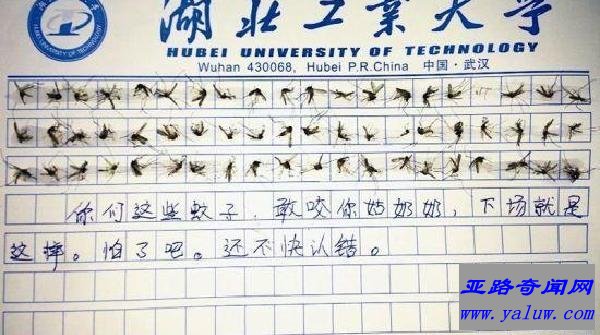 湖北工業大学
HUBEI UNIVERSITY OF TECHNOLOGY
Wuhan 430068, Hubei P.R.China 中国·武汉
你们这些蚊子,敢咬你姑奶奶,下场就是
这样。怕了吧。还不快认错。
亚路奇闻网
www.yaluw.com